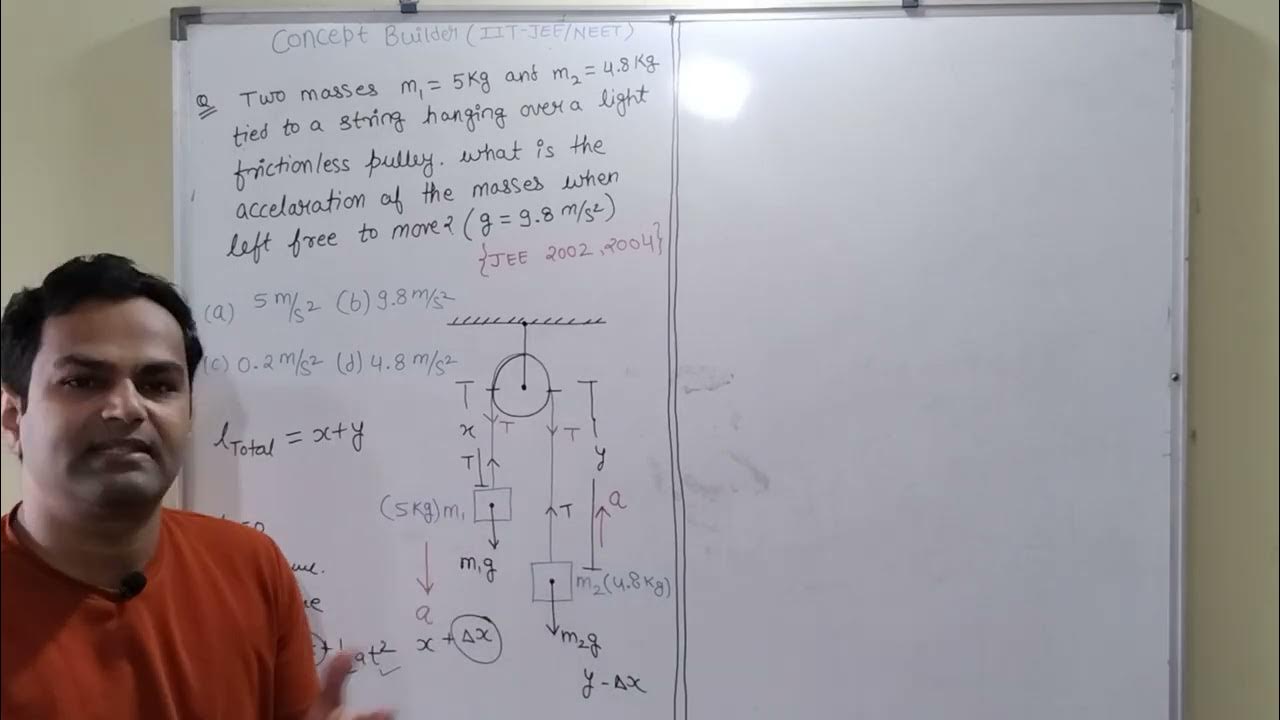 Concept Builder (IIT-JEE/NEET)
Q Two masses m₁ = 5Kg and m₂ = 4.8Kg
tied to a string hanging over a light
frictionless pulley. what is the
accelaration of the masses when
left free to move? (g = 9.8 m/s²)
{JEE 2002, 2004}
(a) 5 m/s² (b) 9.8 m/s²
(c) 0.2 m/s² (d) 4.8 m/s²
l Total = x+y
T T
x
y
T
T
(5Kg) m₁
T
a
m₁g
m₂ (4.8Kg)
a
at²
x + Δx
m₂g
y - Δx